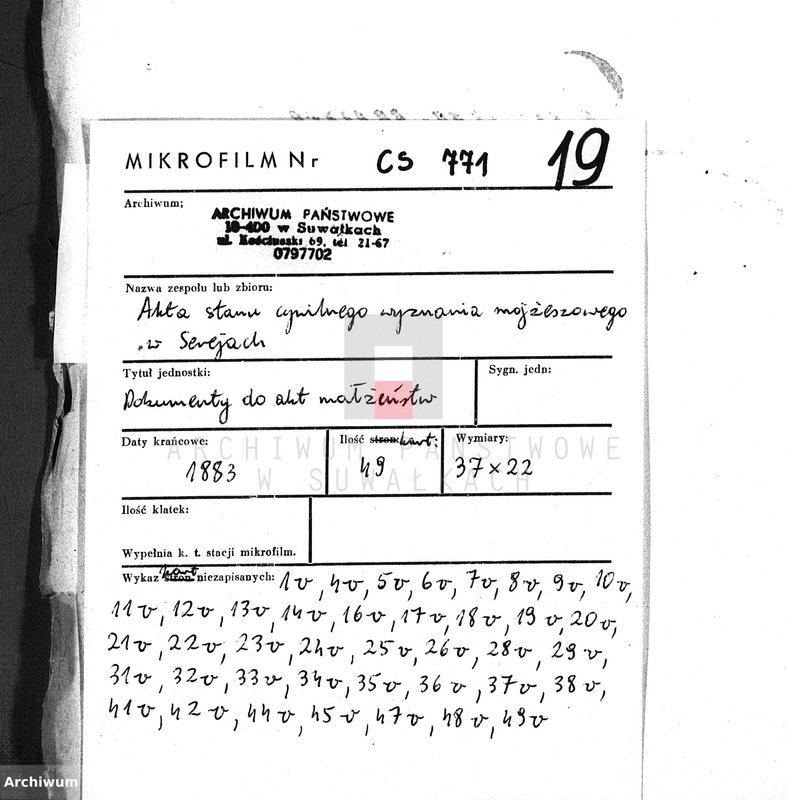 MIKROFILM Nr CS 771 19
Archiwum;
ARCHIWUM PAŃSTWOWE
16-400 w Suwałkach
ul. Kościuszki 69, tel 21-67
0797702
Nazwa zespołu lub zbioru:
Akta stanu cywilnego wyznania mojżeszowego
w Serejach
Tytuł jednostki:
Sygn. jedn:
Dokumenty do akt małżeństw
Daty krańcowe:
1883
Ilość stron: kart:
49
Wymiary:
37 × 22
ARCHIWUM PAŃSTWOWE
W SUWAŁKACH
Ilość klatek:
Wypełnia k. t. stacji mikrofilm.
Wykaz stron kart niezapisanych: 1v, 4v, 5v, 6v, 7v, 8v, 9v, 10v,
11v, 12v, 13v, 14v, 16v, 17v, 18v, 19v, 20v,
21v, 22v, 23v, 24v, 25v, 26v, 28v, 29v,
31v, 32v, 33v, 34v, 35v, 36v, 37v, 38v,
41v, 42v, 44v, 45v, 47v, 48v, 49v
Archiwum